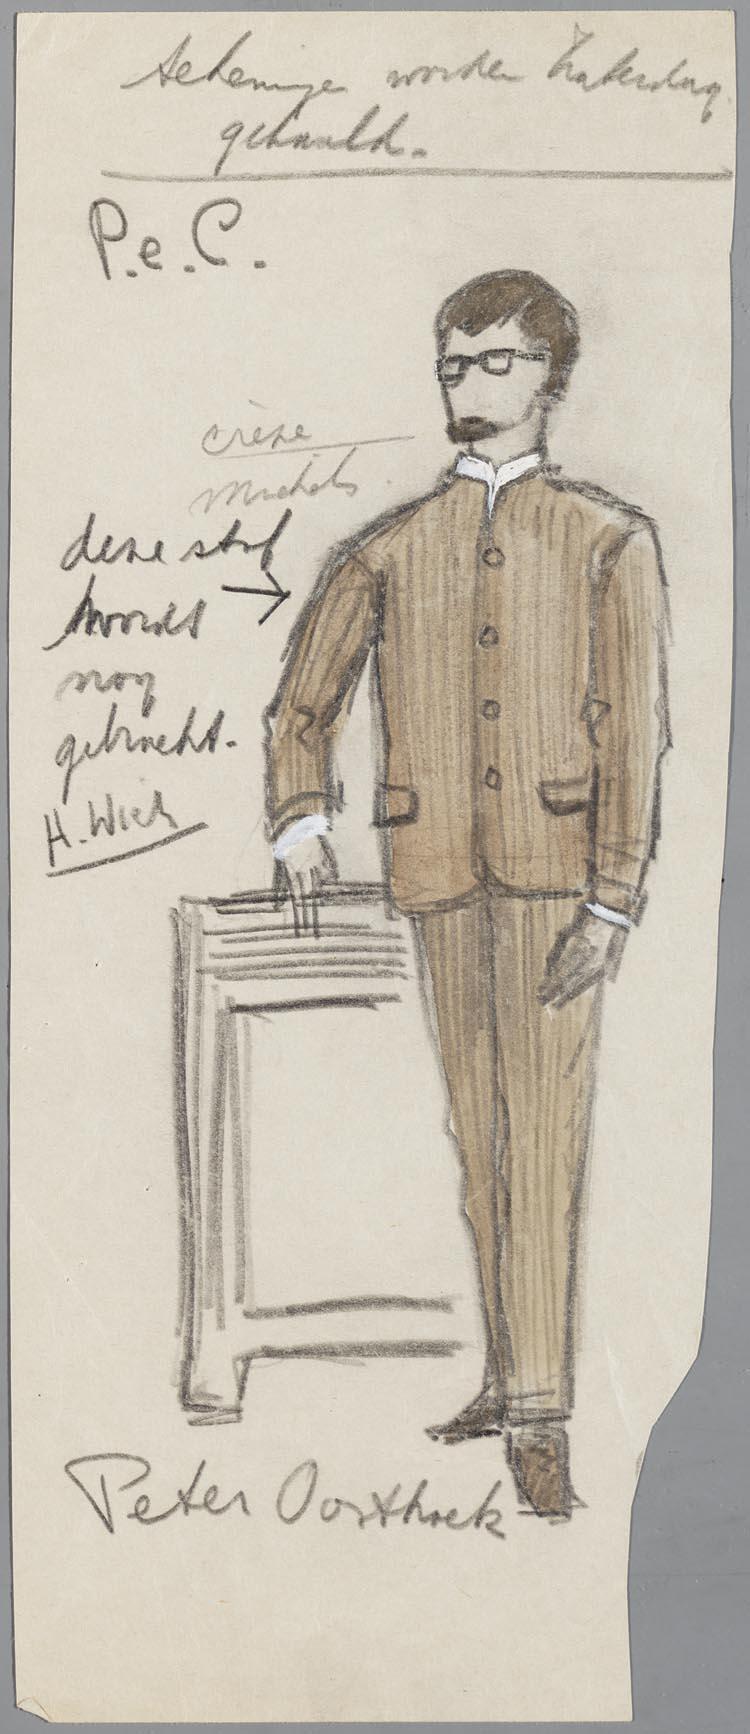 Tekeningen worden Zaterdag
gehaald.
P.e.C.
crème
deze stof
wordt
nog
gebracht.
Peter Oosthoek